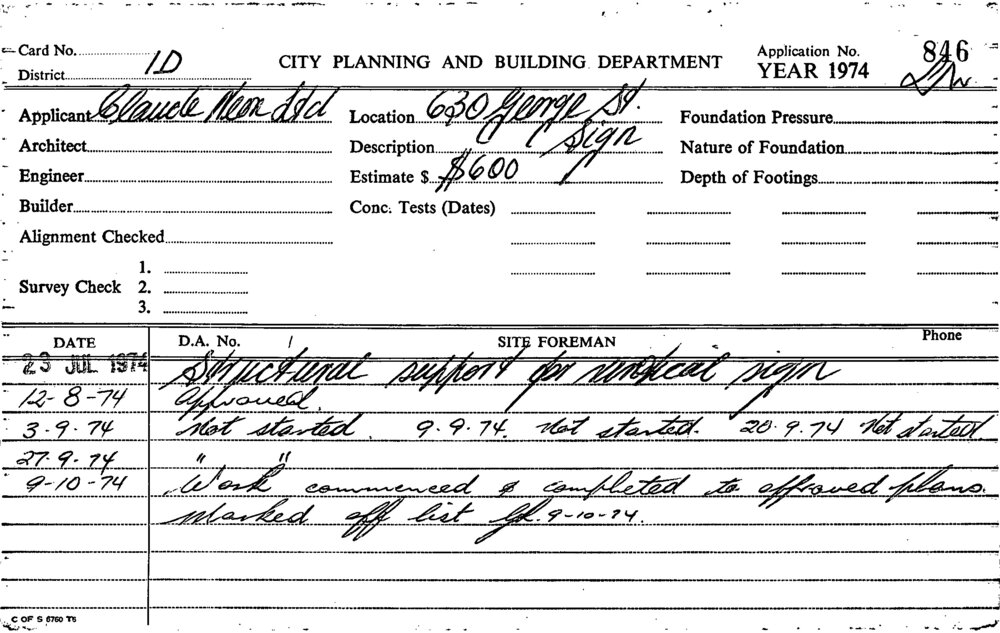 Card No. 1D CITY PLANNING AND BUILDING DEPARTMENT Application No. 846
District YEAR 1974
Applicant Claude Neon Ltd Location 630 George St. Foundation Pressure
Architect Description Sign Nature of Foundation
Engineer Estimate $ $600 Depth of Footings
Builder Conc. Tests (Dates)
Alignment Checked
1.
Survey Check 2.
3.
DATE D.A. No. / SITE FOREMAN Phone
23 JUL 1974 Structural support for vertical sign
12-8-74 Approved.
3-9-74 Not started. 9.9.74. Not started. 20.9.74 Not started
27.9.74 " "
9-10-74 Work commenced & completed to approved plans.
Marked off list 9-10-74.
C OF S 6760 T6